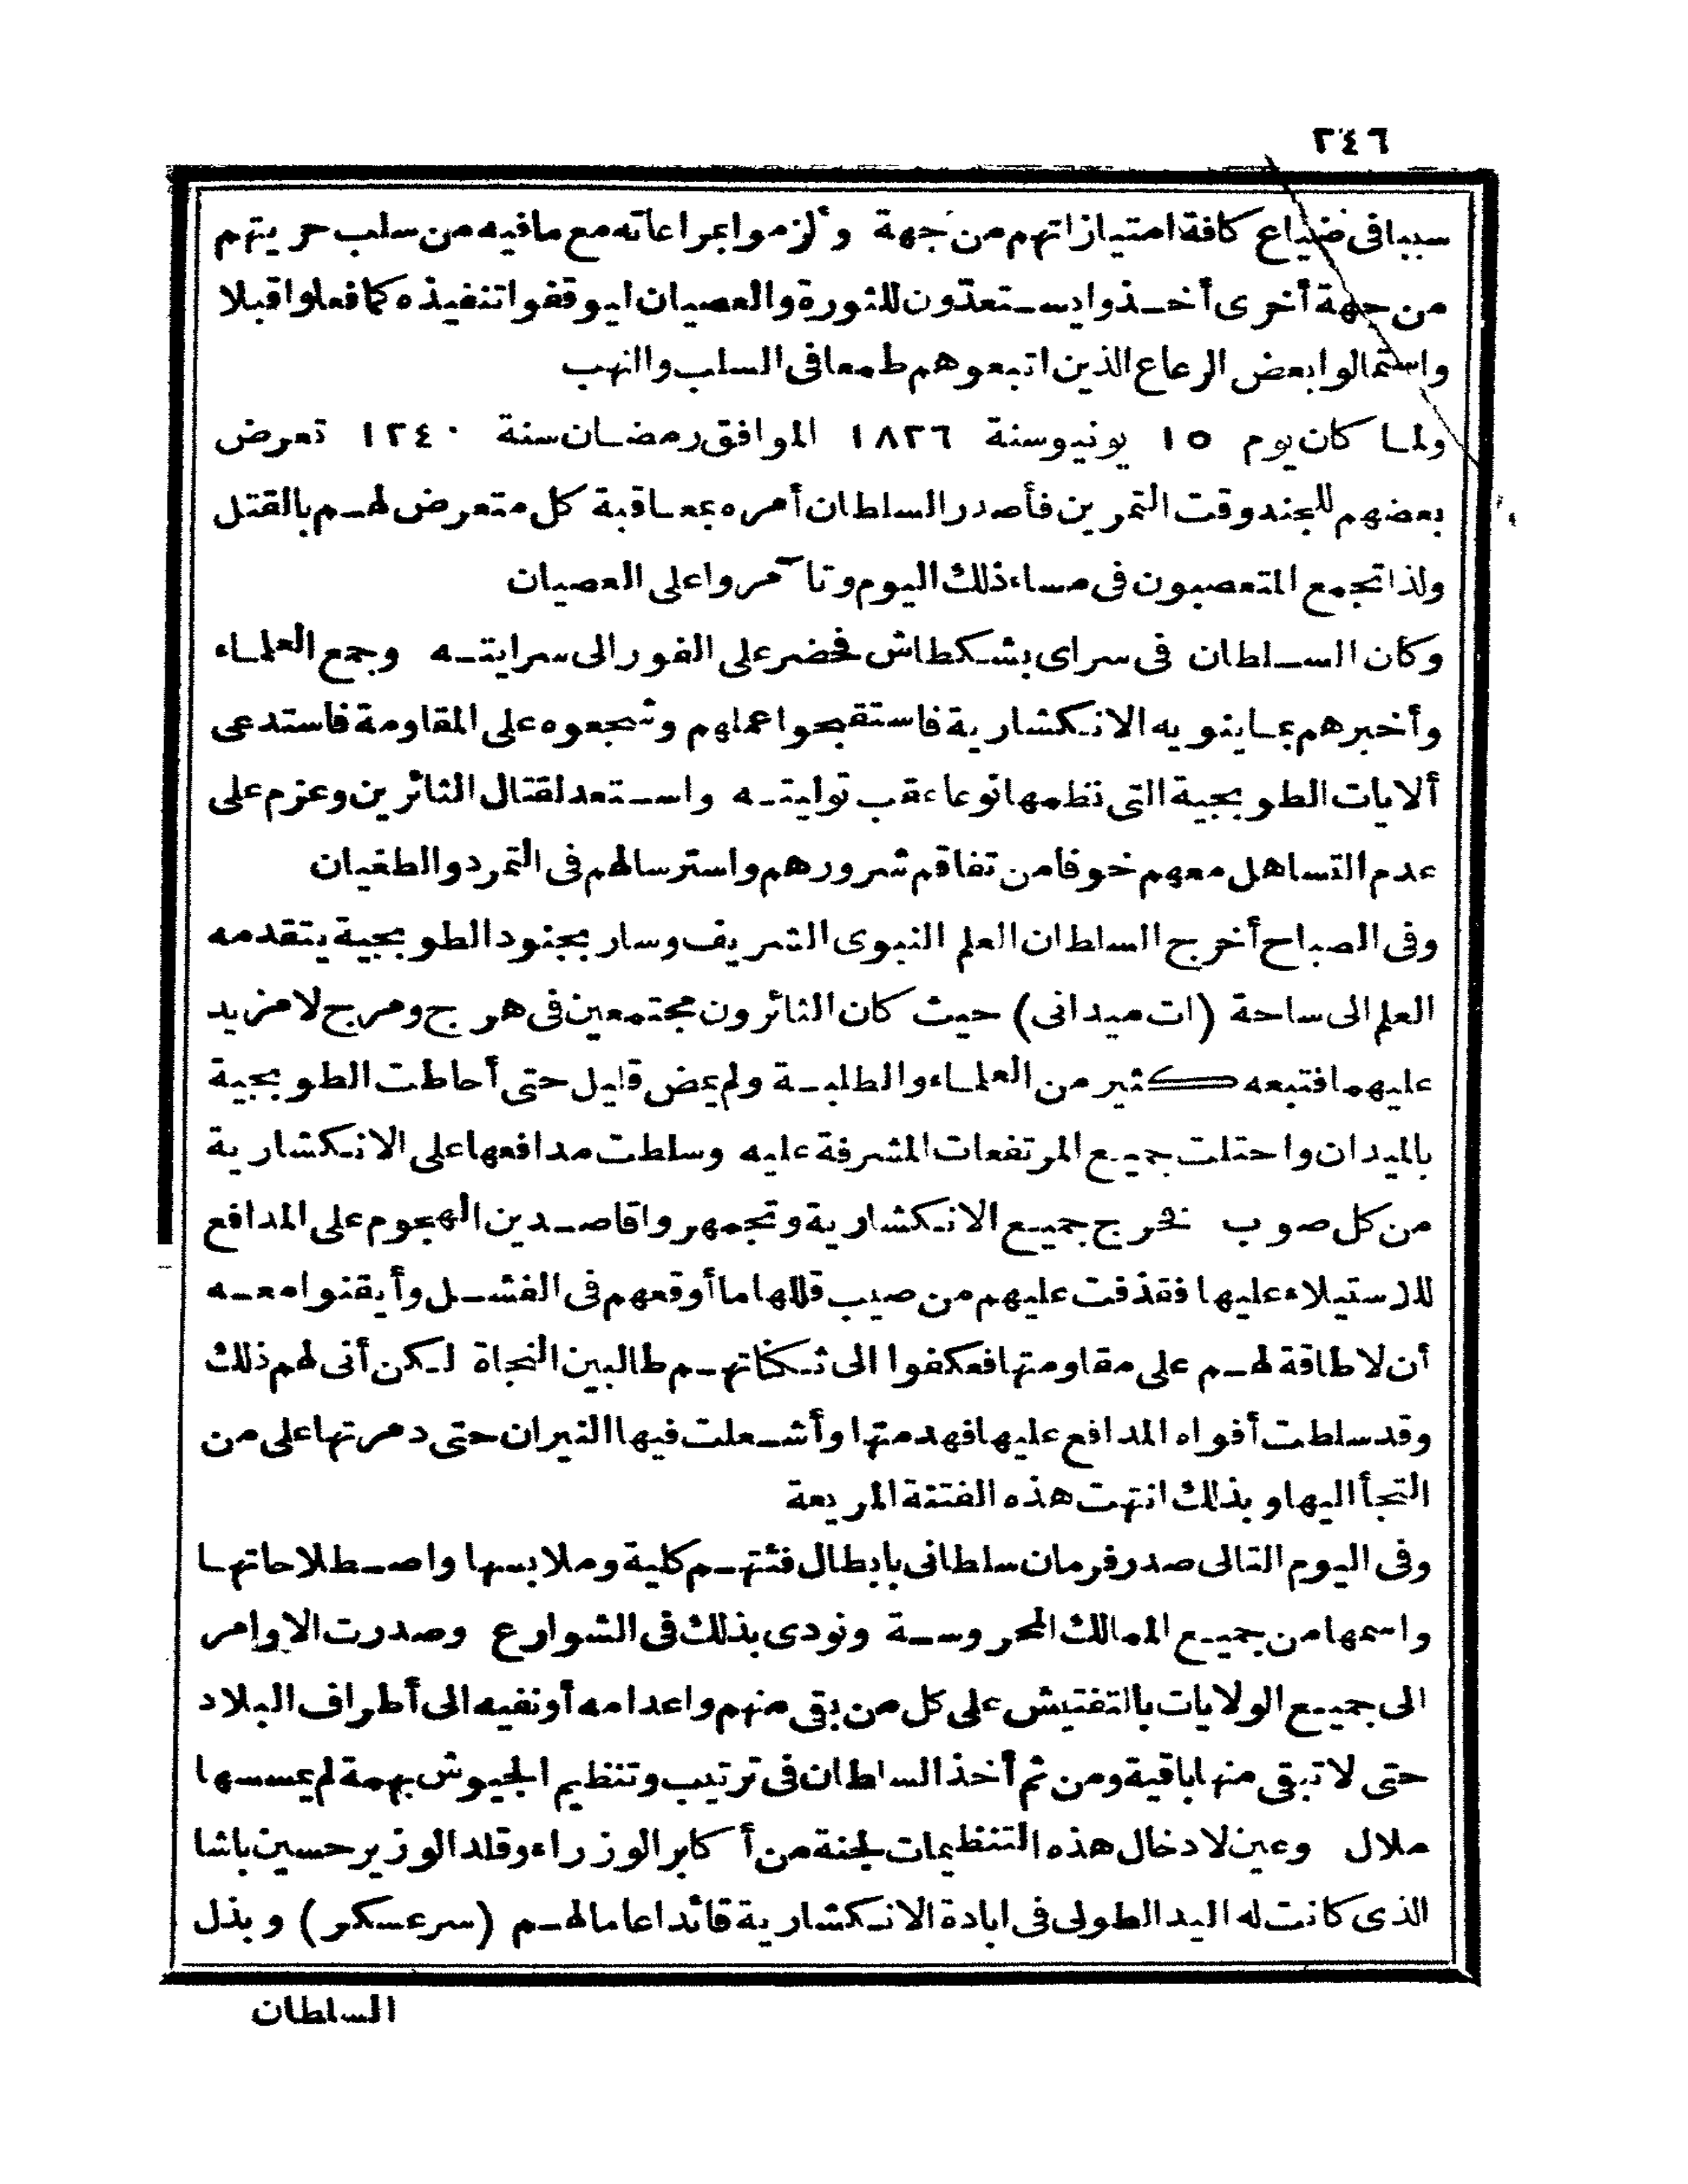 ٢٤٦
سببا فى ضياع كافة امتيازاتهم من جهة وألزموا بمراعاته مع مافيه من سلب حريتهم
من جهة أخرى أخذوا يستعدّون للثورة والعصيان ليوقفوا تنفيذه كما فعلوا قبلا
واستمالوا بعض الرعاع الذين اتبعوهم طمعا فى السلب والنهب
ولما كان يوم ١٥ يونيو سنة ١٨٢٦ الموافق رمضان سنة ١٢٤٠ تعرض
بعضهم للجند وقت التمرين فأصدر السلطان أمره بمعاقبة كل متعرض لهم بالقتل
ولذا تجمع المتعصبون فى مساء ذلك اليوم وتآمروا على العصيان
وكان السلطان فى سراى بشكطاش فحضر على الفور الى سرايته وجمع العلماء
وأخبرهم بما ينويه الانكشارية فاستقبحوا عملهم وشجعوه على المقاومة فاستدعى
ألايات الطوبجية التى نظمها نوعا عقب توليته واستعد لقتال الثائرين وعزم على
عدم التساهل معهم خوفا من تفاقم شرورهم واسترسالهم فى التمرد والطغيان
وفى الصباح أخرج السلطان العلم النبوى الشريف وسار بجنود الطوبجية يتقدمه
العلم الى ساحة (ات ميدانى) حيث كان الثائرون مجتمعين فى هرج ومرج لا مزيد
عليهما فتبعه كثير من العلماء والطلبة ولم يمض قليل حتى أحاطت الطوبجية
بالميدان واحتلت جميع المرتفعات المشرفة عليه وسلطت مدافعها على الانكشارية
من كل صوب فخرج جميع الانكشارية وتجمهروا قاصدين الهجوم على المدافع
للاستيلاء عليها فقذفت عليهم من صيب قللها ما أوقعهم فى الفشل وأيقنوا معه
أن لا طاقة لهم على مقاومتها فعكفوا الى ثكناتهم طالبين النجاة لكن أنى لهم ذلك
وقد سلطت أفواه المدافع عليها فهدمتها وأشعلت فيها النيران حتى دمرتها على من
التجأ اليها وبذلك انتهت هذه الفتنة المريعة
وفى اليوم التالى صدر فرمان سلطانى بابطال فئتهم كلية وملابسها واصطلاحاتها
واسمها من جميع الممالك المحروسة ونودى بذلك فى الشوارع وصدرت الاوامر
الى جميع الولايات بالتفتيش على كل من بقى منهم واعدامه أو نفيه الى أطراف البلاد
حتى لا تبقى منها باقية ومن ثم أخذ السلطان فى ترتيب وتنظيم الجيوش بهمة لم يمسسها
ملال وعين لادخال هذه التنظيمات لجنة من أكابر الوزراء وقلد الوزير حسين باشا
الذى كانت له اليد الطولى فى ابادة الانكشارية قائدا عاما لهم (سرعسكر) وبذل
السلطان